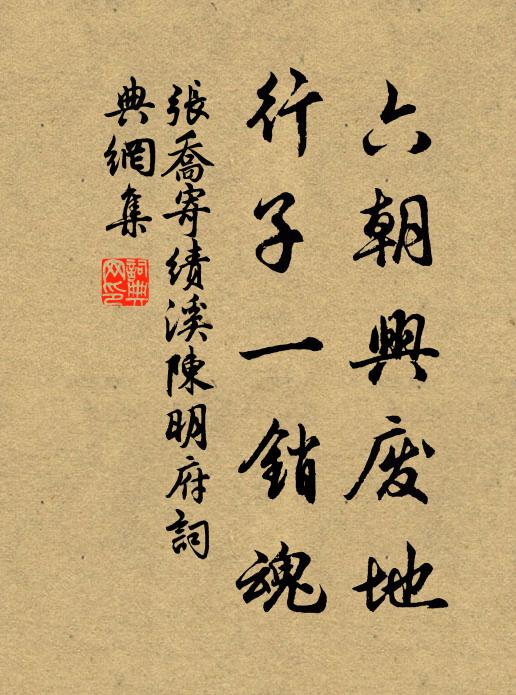 六朝興废地
行子一銷魂
張喬寄績溪陳明府詞
典網集
詞典
网印